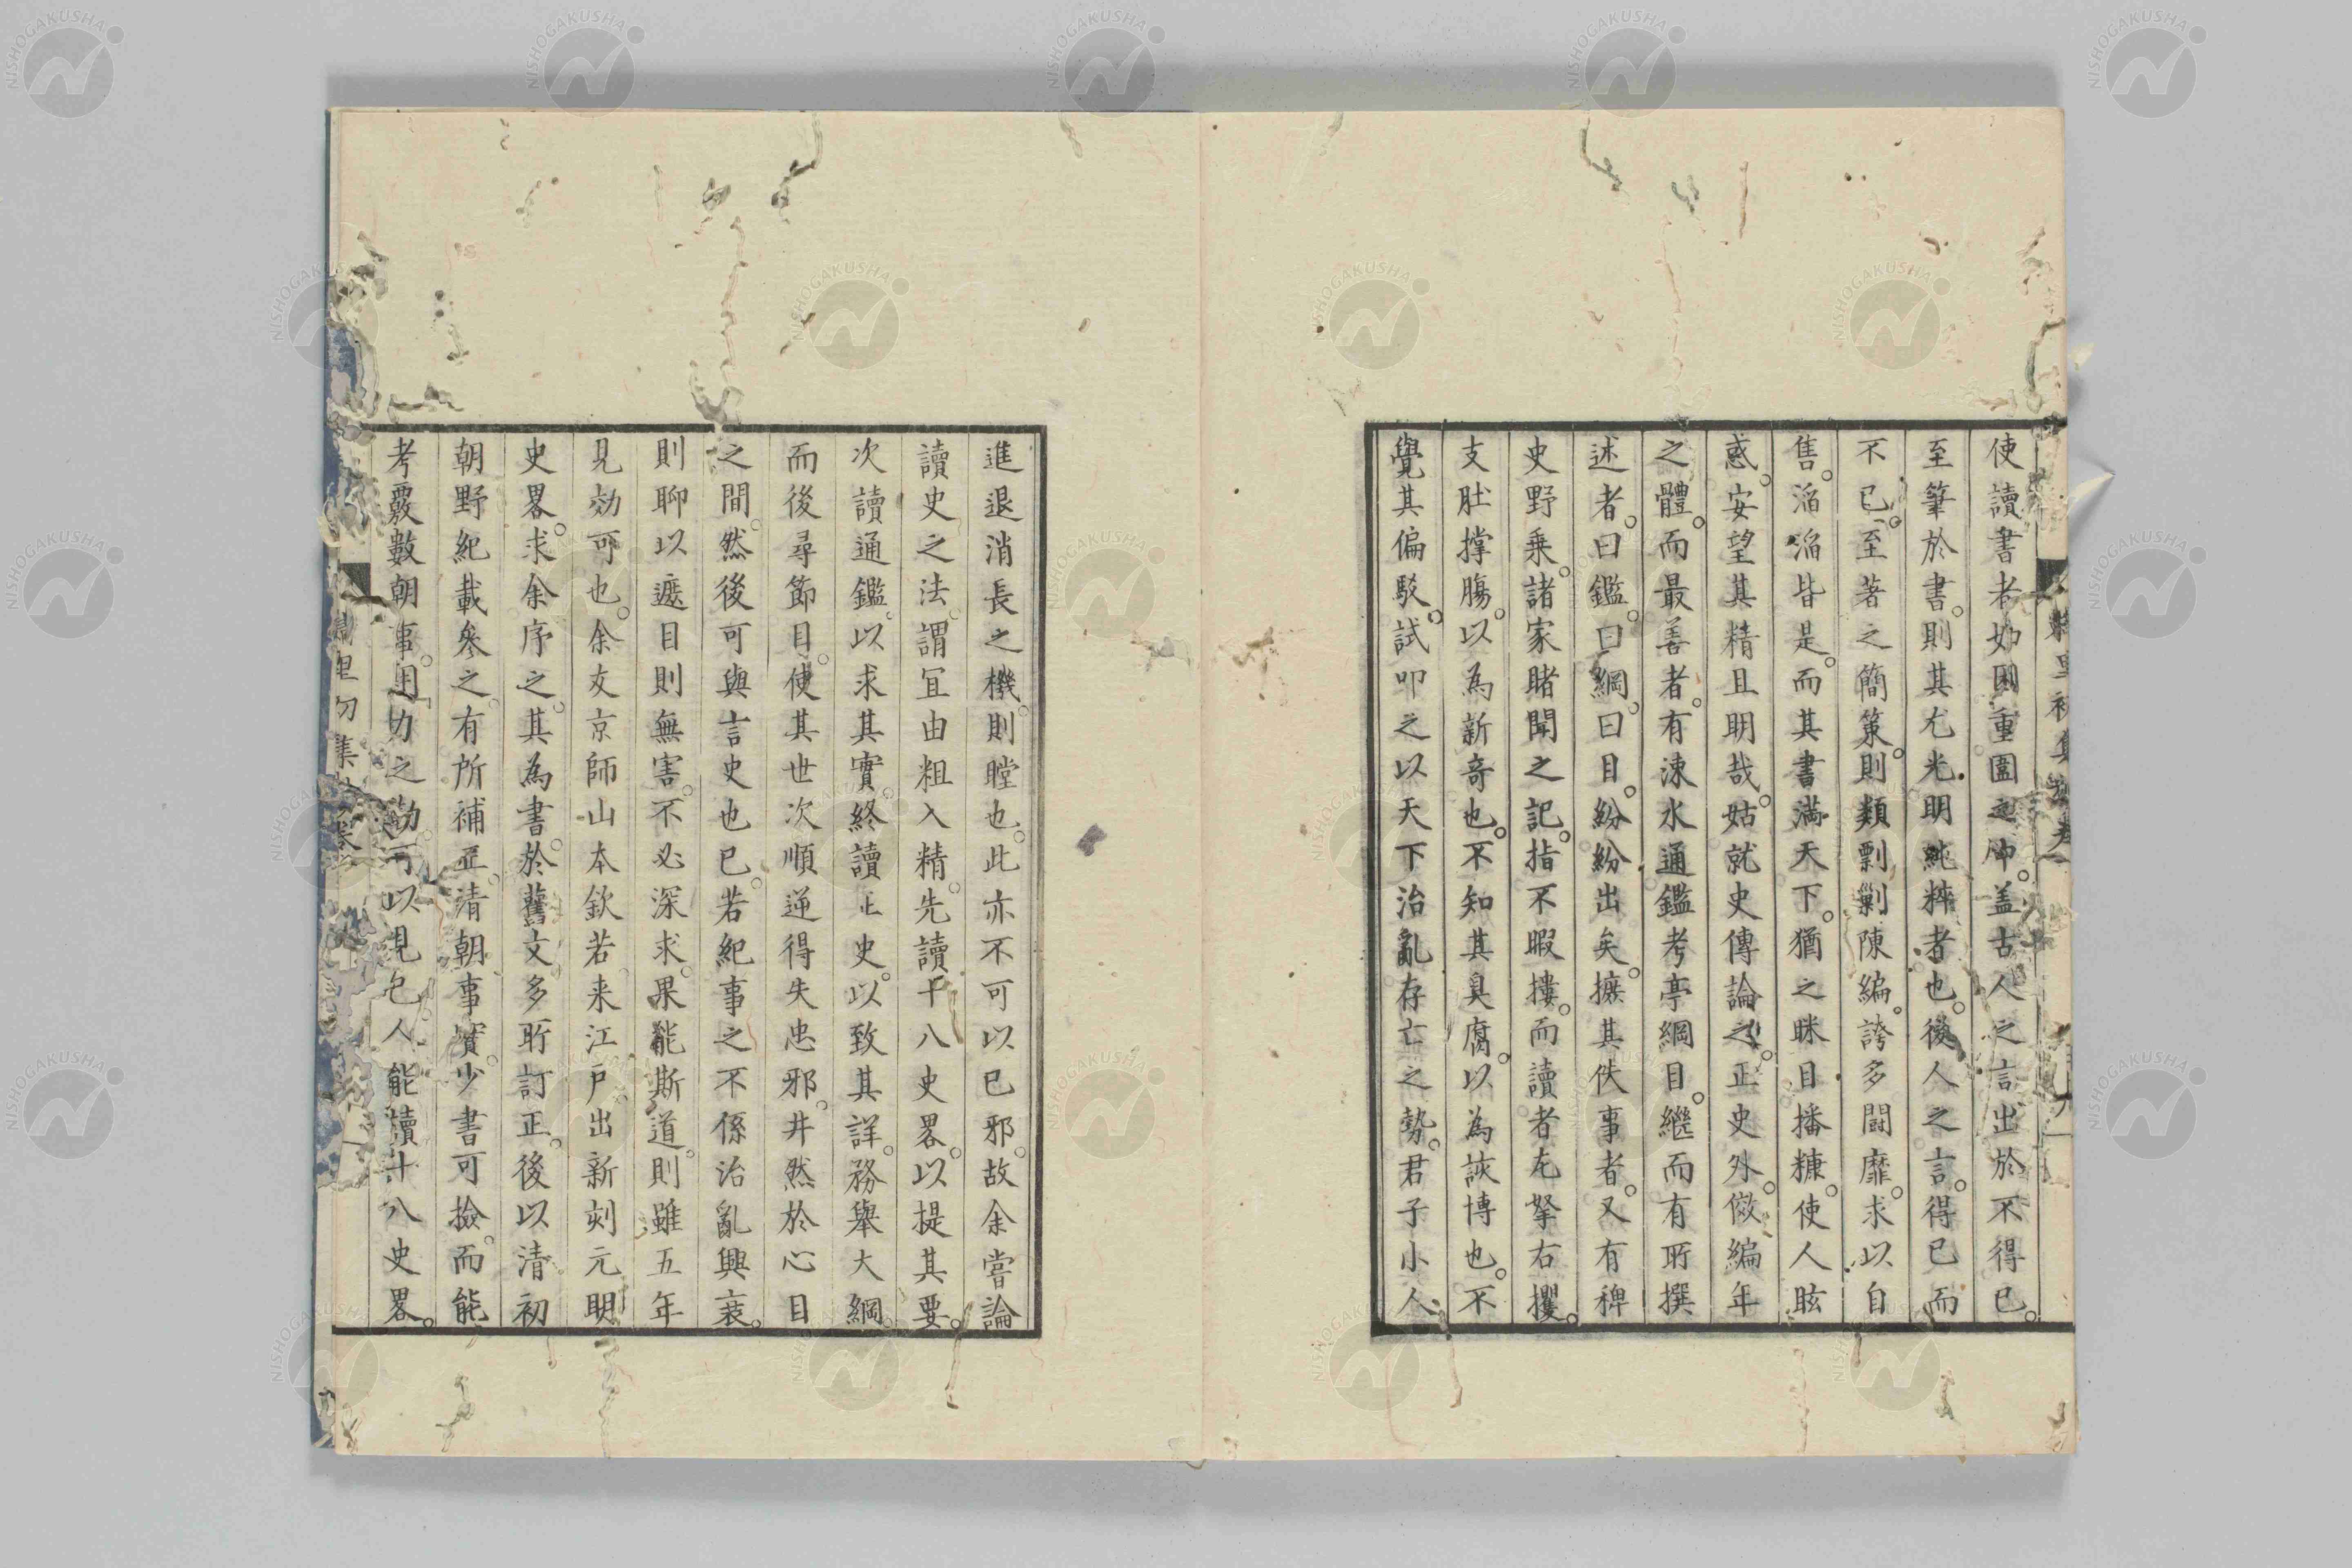 使讀書者如困重圍之中。盖古人之言出於不得已。
至筆於書。則其尤光明純粹者也。後人之言。得已而
不已。至著之簡策。則類剽剿陳編。誇多鬪靡。求以自
售。滔滔皆是。而其書滿天下。猶之眯目播糠。使人眩
惑。安望其精且明哉。姑就史傳論之。正史外。倣編年
之體。而最善者。有涑水通鑑考亭綱目。繼而有所撰
述者。曰鑑。曰綱。曰目。紛紛出矣。摭其佚事者。又有稗
史野乗。諸家睹聞之記。指不暇摟。而讀者左拏右攫。
支肚撑膓。以為新奇也。不知其臭腐。以為詼博也。不
覺其偏駁。試叩之以天下治亂存亡之勢。君子小人
進退消長之機。則瞠也。此亦不可以已邪。故余嘗論
讀史之法。謂宜由粗入精。先讀十八史畧。以提其要。
次讀通鑑。以求其實。終讀正史。以致其詳。務舉大綱。
而後尋節目。使其世次順逆得失忠邪。井然於心目
之間。然後可與言史也已。若紀事之不係治亂興衰。
則聊以遮目則無害。不必深求。果能斯道。則雖五年
見効可也。余友京師山本欽若来江戸出新刻元明
史畧。求余序之。其為書。於舊文多所訂正。後以清初
朝野紀載參之。有所補正。清朝事實。少書可撿。而能
考覈數朝事。用功之勤。可以見已。人能讀十八史畧。
精里初集
NISHOGAKUSHA